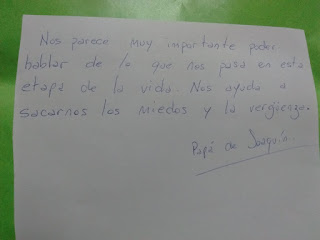 Nos parece muy importante poder
hablar de lo que nos pasa en esta
etapa de la vida. Nos ayuda a
sacarnos los miedos y la vergüenza.
Papá de Joaquín.